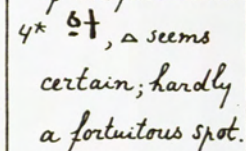 4* ō†, △ seems
certain; hardly
a fortuitous spot.